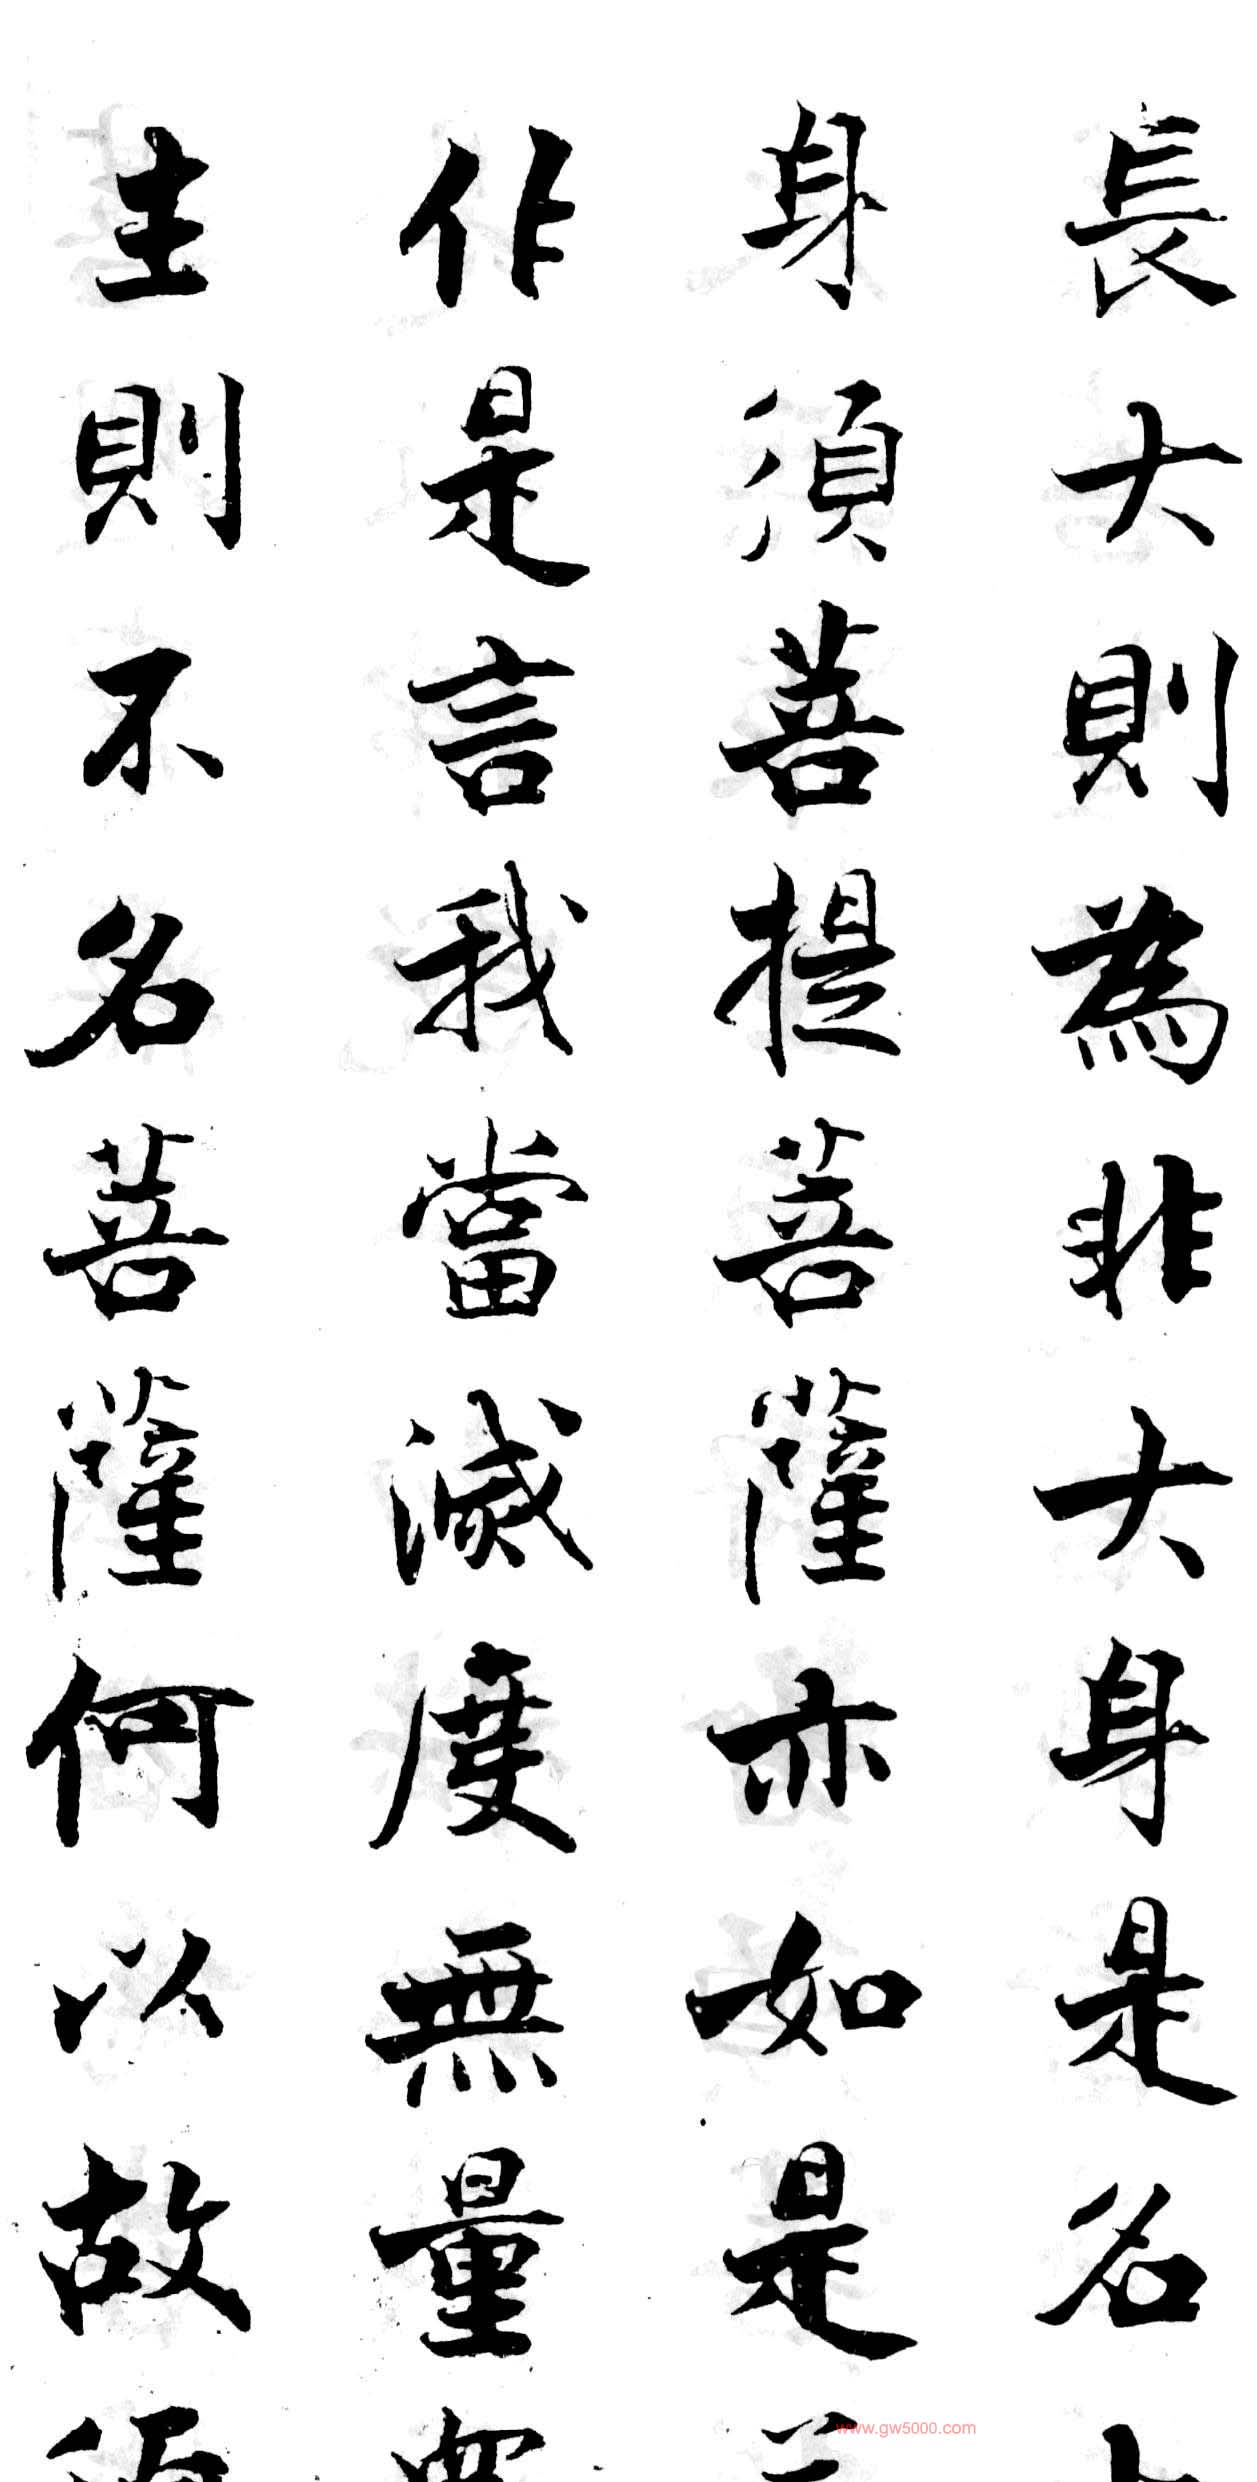 長大則為非大身是名
身須菩提菩薩亦如是
作是言我當滅度無量
生則不名菩薩何以故
www.gw5000.com